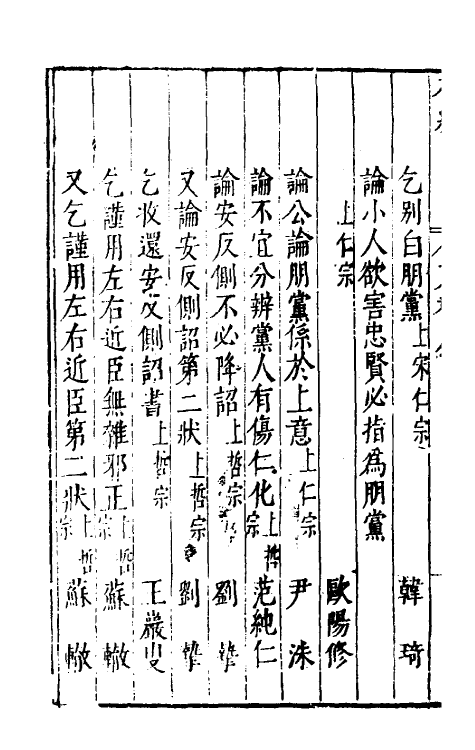 乞别白朋黨上宋仁宗 韓琦
論小人欲害忠賢必指為朋黨
上仁宗 歐陽修
論公論朋黨係於上意上仁宗 尹洙
論不宜分辦黨人有傷仁化上哲宗 范純仁
論安反側不必降詔上哲宗 劉摯
又論安反側詔第二狀上哲宗 劉摯
乞收還安反側詔書上哲宗 王巖叟
乞謹用左右近臣無雜邪正上哲宗 蘇轍
又乞謹用左右近臣第二狀上哲宗 蘇轍